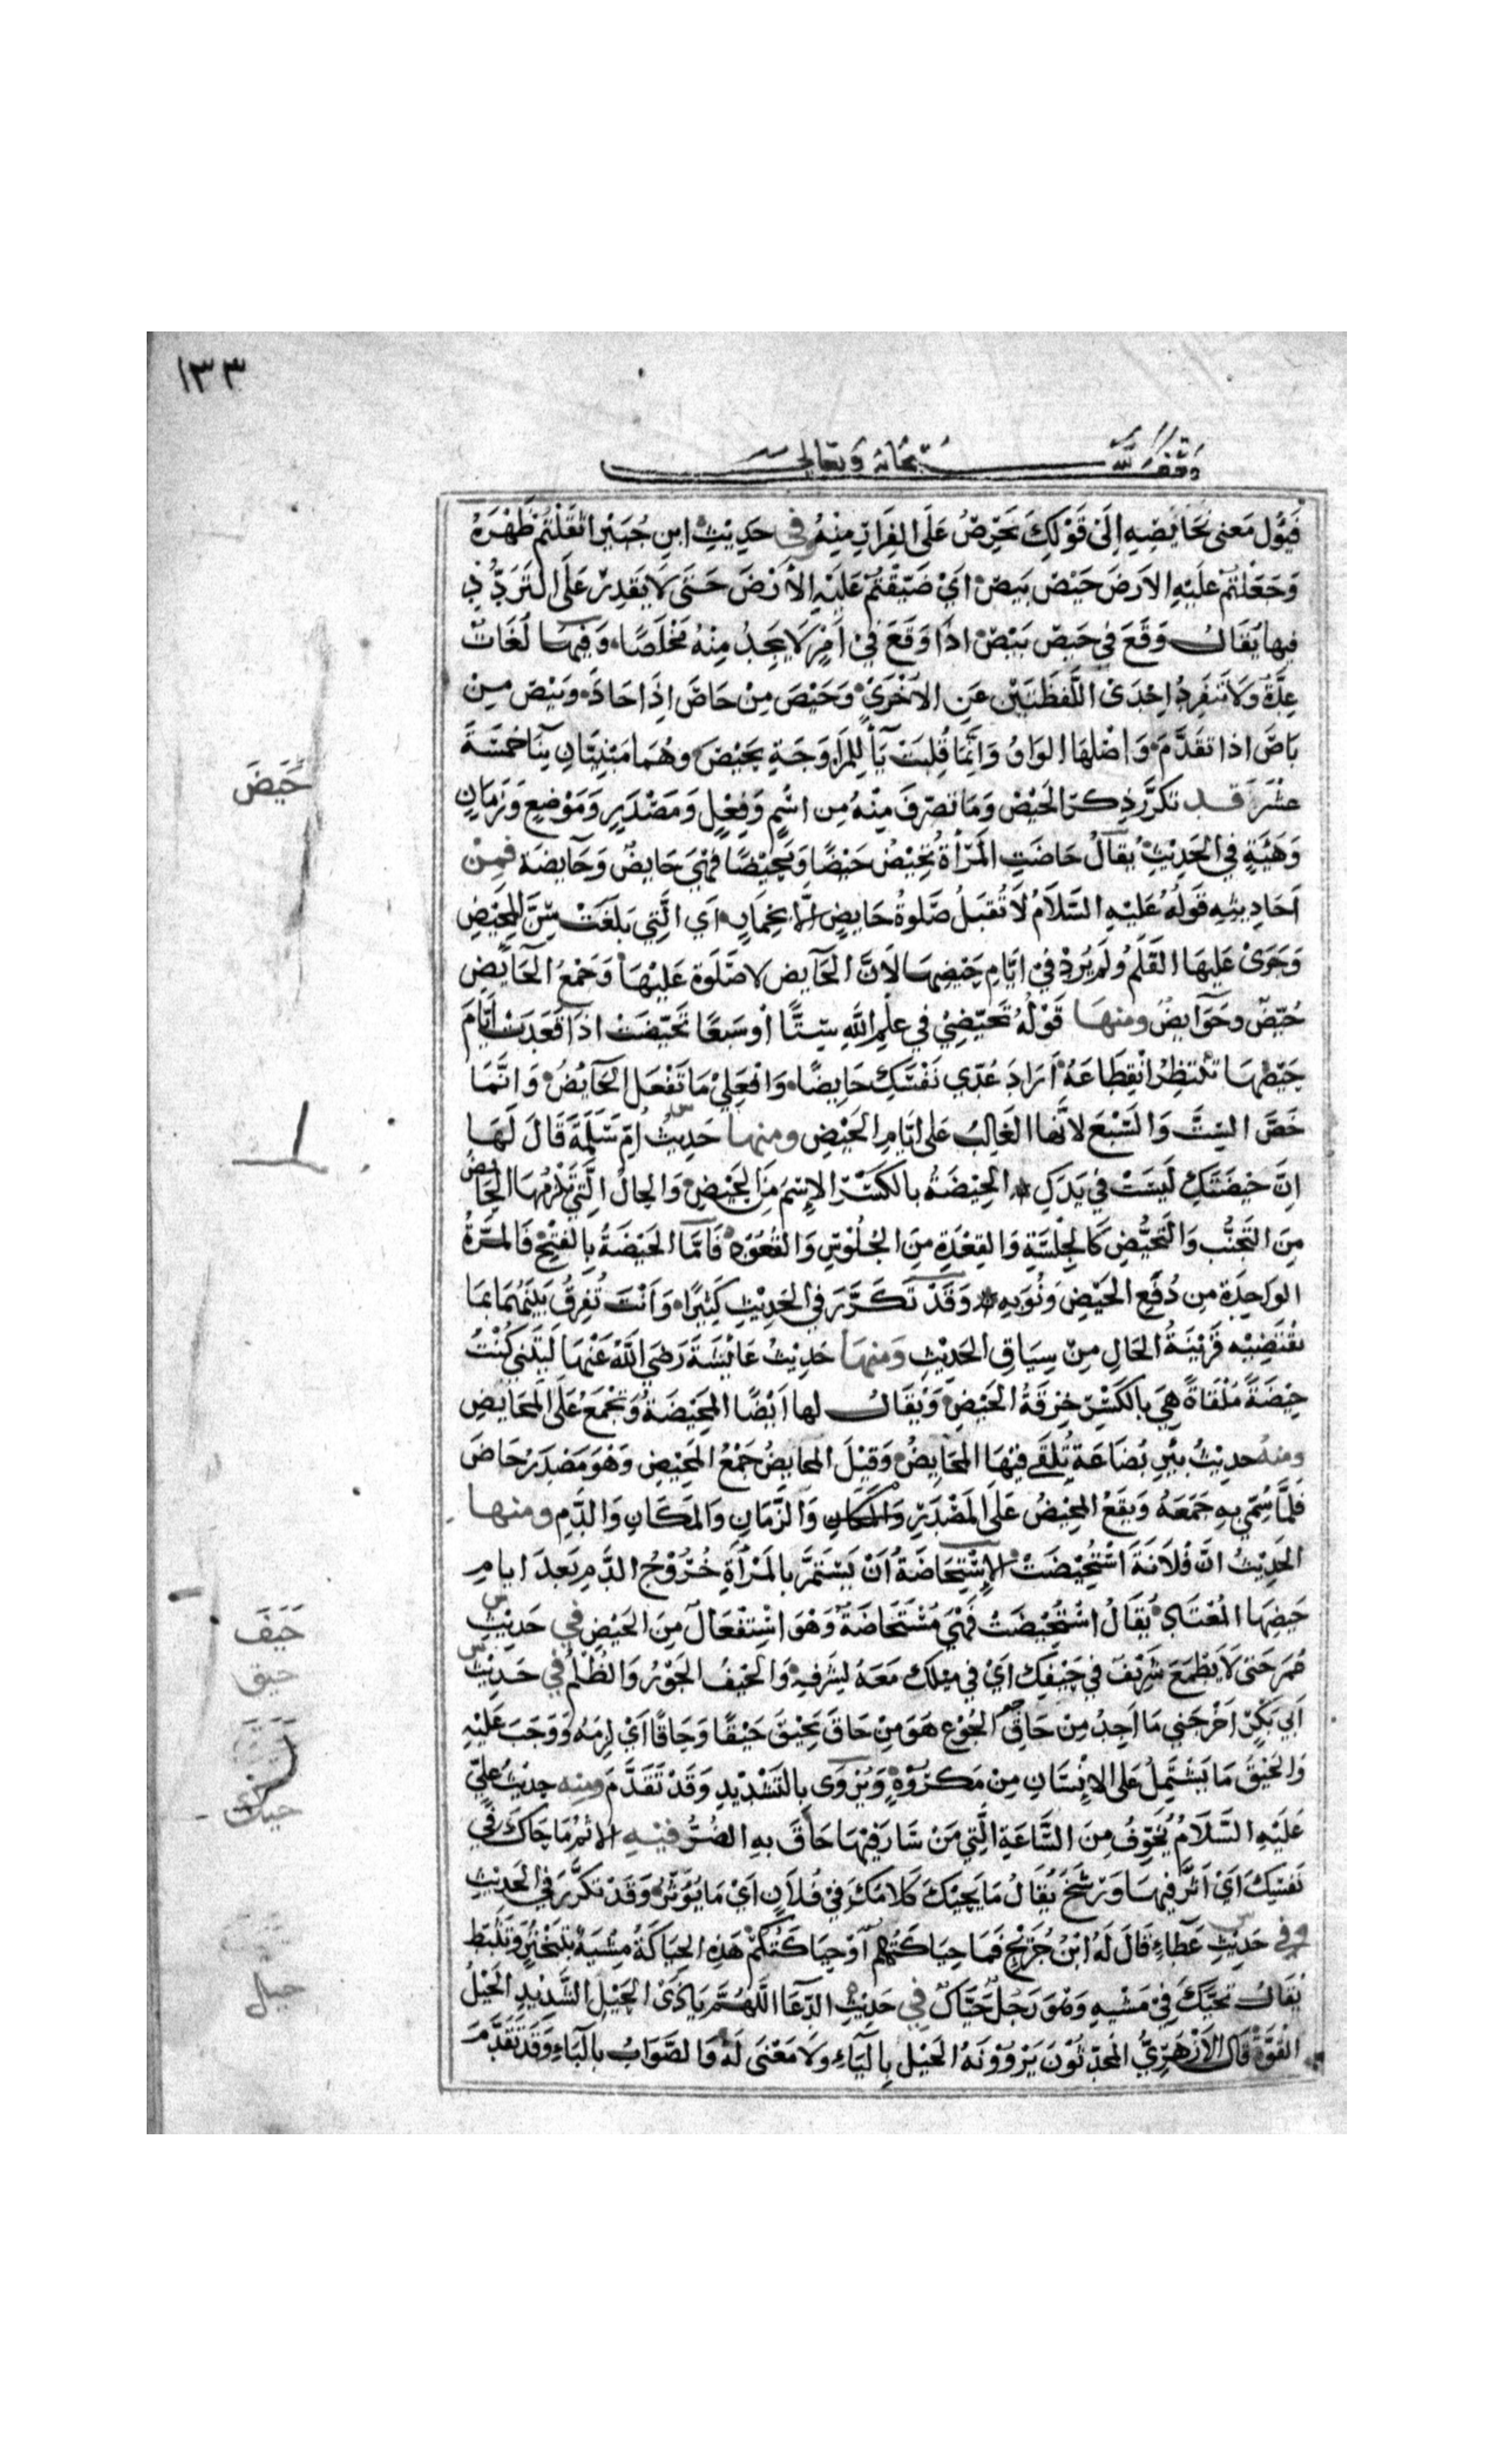 ١٣٣
وقف لله سبحانه وتعالى
فَيَؤُل مَعنى نحَايصِهِ اِلَىٰ قَوْلِكَ يَحْرِصُ عَلَى الفِرَارِ مِنْهُ في حَدِيْثِ ابنِ جُبَيْر اثقَلْتُم ظَهْرَهُ
وَجَعَلْتُم عَلَيْهِ الارضَ حَيْصَ بَيصَ اَيْ ضَيَّقْتُمْ عَلَيْهِ الْاَرْضَ حَتّى لَا يَقدِرْ عَلَى التَرَدُّدِ
فيها يُقَالُ وَقَعَ في حَيصَ بَيْصَ اذَا وَقَعَ فِيْ اَمْرٍ لَا يَجِدُ مِنْهُ مَخْلَصًا وَفيهَا لُغَاتٌ
عِدَّةٌ وَلَا تَنفَرِدُ اِحْدَى اللَّفظَتَيْنِ عَنِ الْاُخْرَيْ وَحَيْصَ مِنْ حَاصَ اِذَا حَادَ وَبَيْصَ مِنْ
بَاصَ اذا تقَدَّمَ وَاصْلهَا الوَاوُ وَاِنَّمَا قُلِبَتْ يَآءً لِلمُزَاوَجَةِ بِحَيْصَ وهُمَا مَبْنِيَّانِ بِنَا خمسَةَ
عشَرَ قد تكرَّر ذِكرُ الحَيْضِ وَمَا تَصَرّفَ مِنْهُ مِن اسْمٍ وَفِعْلٍ وَمَصْدَرٍ وَمَوْضِعٍ وَزَمَانٍ
وَهَيْئَةٍ فِي الحَدِيْثِ يُقَالُ حَاضَتِ المَرْأةُ تَحِيْضُ حَيْضًا وَمَحِيْضًا فَهْيَ حَايضٌ وَحَآيضَة فمِنْ
اَحَادِيثِهِ قَوْلُهُ عَلَيْهِ السَّلَامُ لَا تُقْبَلُ صَّلوةُ حَايِضٍ اِلَّا بِخِمَارٍ اَي الَّتِي بَلَغَتْ سِنَّ المَحِيْضِ
وَجَرَىٰ عَلَيهَا القَلَمُ وَلَم يُرِدْ فيْ ايَّامِ حَيْضِهَا لَاَنَّ الحَآيض لا صَلوة عَلَيْهَا وَجَمْعُ الحَآيِضِ
حُيَّضٌ وحَوَآيضٌ ومنهَا قَوْلُهُ تَحَيَّضِيْ في عِلْمِ اللّٰهِ سِتًّا اَو سَبعًا تَحَيّضَتْ اذَا قعَدَتْ ايَّامَ
حَيْضِهَا تَنْتَظِرُ انْقِطَاعَهُ اَرَادَ عُدِّي نَفْسَكِ حَايِضًا وَافْعَلِيْ مَا تَفْعَل الحَآيضُ وَانَّمَا
خَصَّ السِتَّ وَالسَّبْعَ لانَّهَا الغَالِبُ عَلى ايَّامِ الحَيْضِ ومنهَا حَدِيثُ اُمِّ سَلَمَةَ قَالَ لَهَا
اِنَّ حَيْضَتَكِ لَيسَتْ في يَدِكِ الحِيْضَةُ بالكَسْرِ الاِسْمُ مِنَ الحَيْضِ وَالحَالُ الَّتِيْ تَلْزَمُهَا الحَايضُ
مِنَ التَّجَنُّبِ وَالتَّحَيُّضِ كَالجِلْسَةِ وَالقِعْدَةِ مِنَ الجُلُوْسِ وَالقُعُوْدِ فَامَّا الحَيْضَةُ بالفتْحِ فَالمَرَّةُ
الوَاحِدَة مِن دُفَعِ الحَيْضِ وَنُوَبِهِ وَقَدْ تَكَرَّرَ فِي الحَدِيْثِ كَثِيْرًا وَاَنْتَ تُفَرِقُ بَيْنَهُمَا بمَا
تقْتَضِيْه قَرِيْنَةُ الحَالِ مِنْ سِيَاقِ الحَدِيْثِ وَمنهَا حَدِيْثُ عَايْشَةَ رَضِيَ اللّٰهُ عَنْهَا لَيْتَني كُنْتُ
حِيْضَةً مُلْقَاةً هِيَ بالكَسْرِ خِرْقَةُ الحَيْضِ وَيُقَالُ لها اَيْضًا المَحِيْضَةُ وَتجْمَعُ عَلَى المَحَايضِ
ومنه حديْثُ بيْرِ بُضَاعَةَ يُلْقَى فِيْهَا المَحَايِضُ وَقِيْلَ المحايضُ جَمْعُ المَحِيْضِ وَهْوَ مَصْدَرُ حَاضَ
فَلَمَّا سُمِّيَ بِهِ جَمَعَهُ وَيَقَعُ المَحِيْضُ عَلَى المَصْدَرِ وَالمكَانِ وَالزَّمَانِ وَالمَكَانِ وَالدَّمِ ومنهَا
الحَدِيْثُ انَّ فُلَانَةَ اسْتُحِيْضَتْ الاِسْتِحَاضَةُ اَنْ يَسْتَمرَّ بالمَرْأةِ خُرُوْجُ الدَّمِ بَعدَ ايامِ
حَيضِهَا المُعْتَادِ يُقَالُ اسْتُحِيْضَتْ فَهْيَ مُسْتَحَاضَةٌ وَهْوَ اسْتِفْعَالٌ مِنَ الحَيْضِ في حَدِيْثِ
عُمَرَ حَتى لَا يَطْمَعَ شَرِيْفٌ في حَيْفِكَ اَيْ في مَيْلِكَ مَعَهُ لِشَرَفِهِ وَالحَيْفُ الجَوْرُ وَالظُّلْمُ في حَدِيْثِ
اَبي بَكْرٍ اَخْرَجَني مَا اَجِدُ مِن حَاقِّ الجُوْعِ هُوَ مِنْ حَاقَ يَحِيْقَ حَيْقًا وَحَاقًا اَيْ لزِمَهُ وَوَجَبَ عَلَيْهِ
وَالحَيْقُ مَا يَشْتَمِلُ عَلى الاِنْسَانِ مِنْ مَكرُوْهٍ وَيُرْوَى بالتَّشْدِيْدِ وَقَدْ تَقَدَّمَ ومنه حديْثُ عَليٍّ
عَلَيْهِ السَّلَامُ تُخَوِّفُ مِنَ السَّاعَةِ الَّتِي مَنْ سَارَ فِيْهَا حَاقَ بهِ الضُرُّ فيْهِ الاثمُ مَا حَاكَ في
نَفْسِكَ اَيْ اثَّرَ فِيهَا وَرَسَخَ يُقَالُ مَا يَحِيْكَ كَلَامُكَ في فُلَانٍ اَيْ مَا يُؤَثِّرُ وَقَدْ تكَرَّرَ في الحَدِيْثِ
وفي حَدِيْثِ عَطَآءٍ قَالَ لَهُ ابْنُ جُرَيْجٍ فَمَا حِيَاكَتُهُم اَوْ حِيَاكَتُكُمْ هَذِهِ الحِيَاكَةُ مِشْيَةُ تَبَخْتُرٍ وَتَثَبُّطٍ
يُقَالُ تحَيَّكَ فيْ مَشْيِهِ وَهْوَ رَجُلٌ حَيَّاكٌ في حَدِيْثِ الدُّعَآ اللَّهُمَّ يَا ذَي الحَيْلِ الشَّدِيْدِ الحَيْلُ
القُوَّةُ قَالَ الاَزْهَرِيُّ المُحَدِّثُوْنَ يَرْوُوْنَهُ الحَبْل بِالبَاءِ وَلَا مَعْنَى لَهُ وَالصَّوَابُ بِاليَاءِ وَقَدْ تَقَدَّمَ
حَيَضَ
حَيَفَ
حيق
حيك
حيل